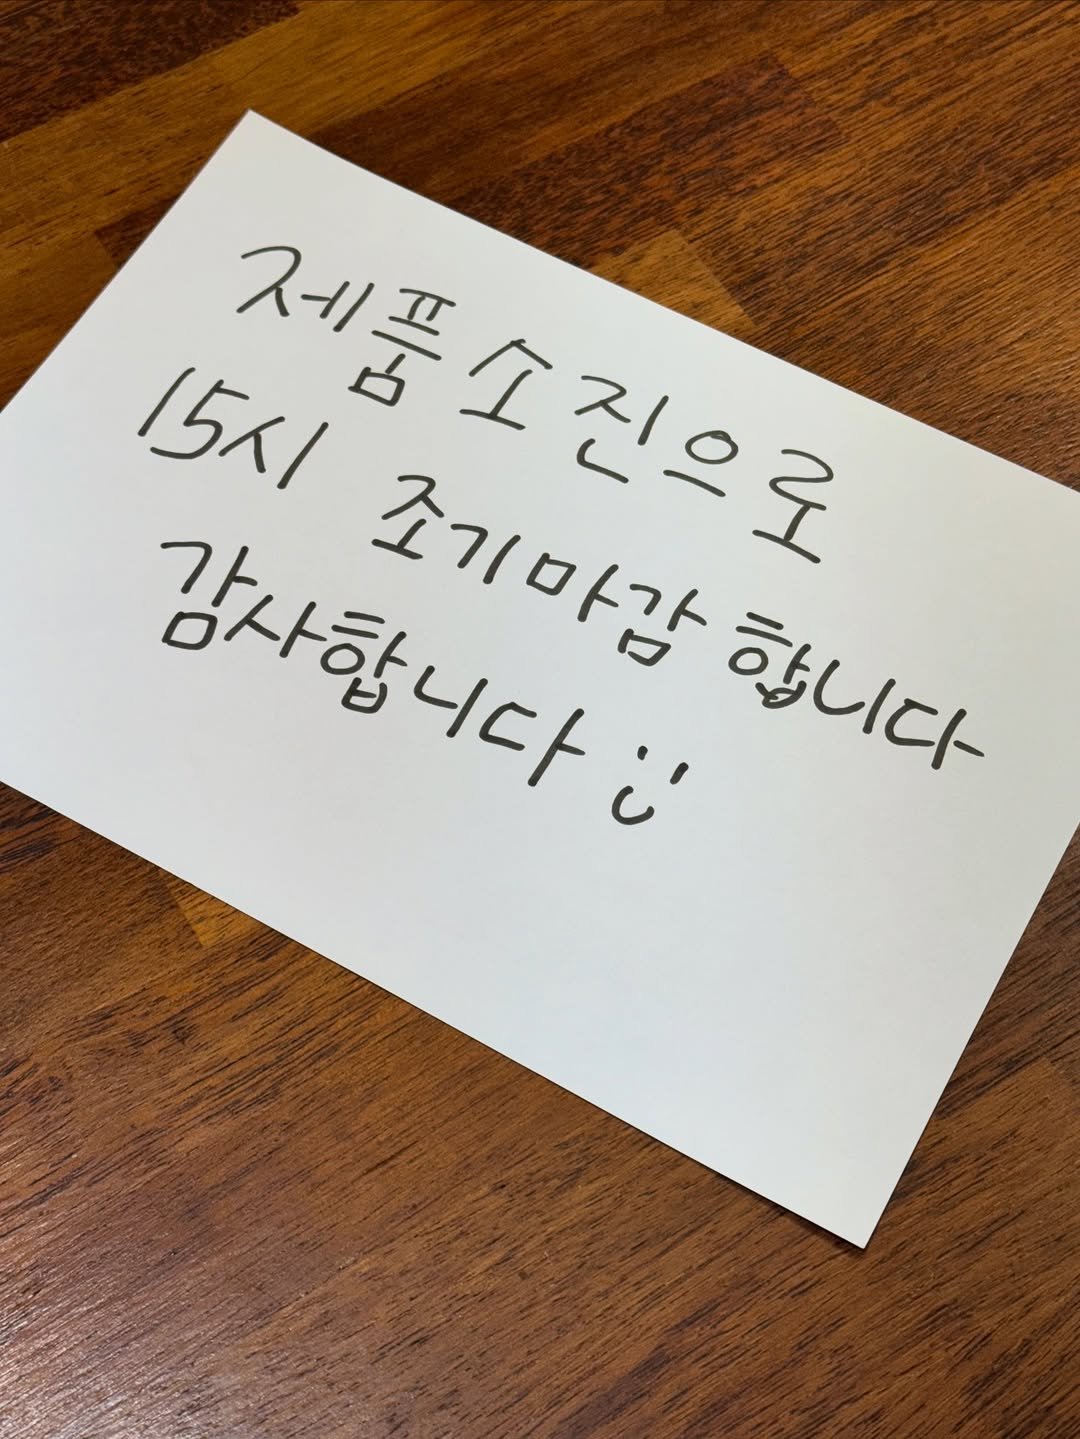 제품 소진으로
15시 조기마감 합니다
감사합니다 :)